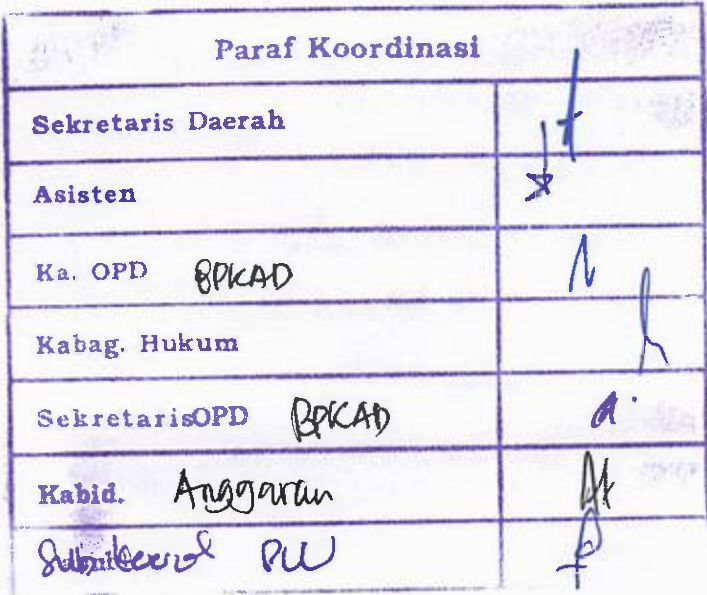 Paraf Koordinasi
Sekretaris Daerah
Asisten
Ka. OPD BPKAD
Kabag. Hukum
SekretarisOPD BPKAD
Kabid. Anggaran